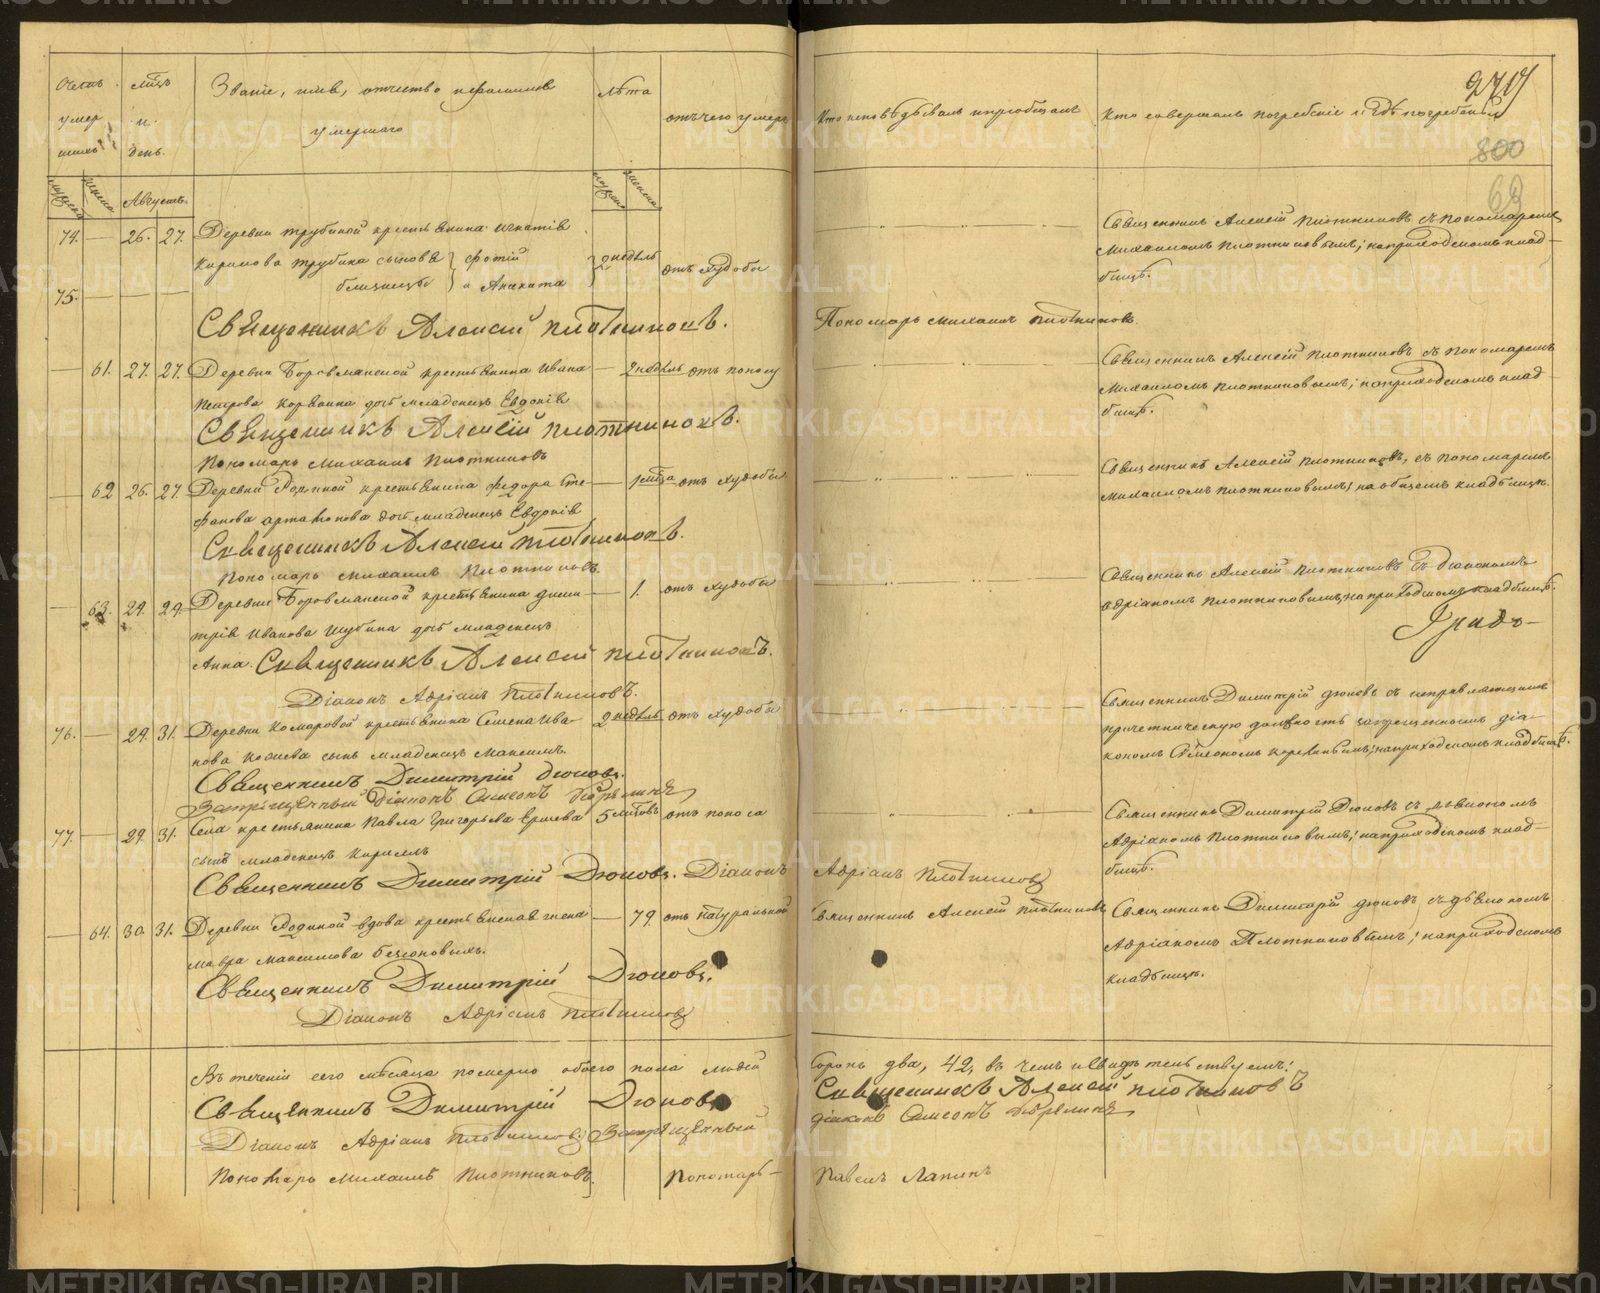 Счетъ умершихъ
Мѣсяцъ и день.
Званіе, имя, отчество и фамилія
умершаго
Лѣта
отъ чего умеръ
Кто исповѣдывалъ и пріобщалъ
Кто совершалъ погребеніе и гдѣ погребены
271
800
69
мужеска
женска
Августъ.
мужеска
женска
74. — 26. 27. Деревни Трубиной крестьянина Игнатія
Кирилова Трубина сыновья Фотій 2 недѣль отъ худобы
75. — — — близнецы и Аникита
Священникъ Алексій Плотниковъ с пономаремъ
Михаиломъ Плотниковымъ; на приходскомъ клад-
бищѣ.
Священникъ Алексій Плотниковъ. Пономарь Михаилъ Плотниковъ
— 61. 27. 27. Деревни крестьянина Ивана — 2 недѣль отъ поносу
Петрова дочь младенецъ Евдокія
Священникъ Алексій Плотниковъ съ пономаремъ
Михаиломъ Плотниковымъ; на приходскомъ клад-
бищѣ.
Священникъ Алексій Плотниковъ.
Пономарь Михаилъ Плотниковъ
— 62 26. 27. Деревни крестьянина Федора Сте- — 1 мѣсца отъ худобы
фанова дочь младенецъ Евдокія
Священникъ Алексій Плотниковъ, съ пономаремъ
Михаиломъ Плотниковымъ; на общемъ кладбищѣ.
Священникъ Алексій Плотниковъ.
Пономарь Михаилъ Плотниковъ.
— 63. 29. 29. Деревни крестьянина Дими- — 1. отъ худобы
трія Иванова Шубина дочь младенецъ
Анна. Священникъ Алексій Плотниковъ.
Священникъ Алексій Плотниковъ съ діакономъ
Адріаномъ Плотниковымъ; на приходскомъ кладбищѣ.
Діаконъ Адріанъ Плотниковъ.
76. — 29. 31. Деревни Комаровой крестьянина Семена Ива- 2 недѣль отъ худобы
нова сынъ младенецъ Максимъ
Священникъ Димитрій Дюковъ с исправляющимъ
причетническую должность запрещеннымъ діа-
кономъ на приходскомъ кладбищѣ.
Священникъ Димитрій Дюковъ.
Запрещенный Діаконъ Симеонъ
77. — 29. 31. Села крестьянина Павла Григорьева Ершева 5 мѣсцовъ отъ поноса
сынъ младенецъ Кирилъ
Священникъ Димитрій Дюковъ с діакономъ
Адріаномъ Плотниковымъ; на приходскомъ клад-
бищѣ.
Священникъ Димитрій Дюковъ. Діаконъ Адріанъ Плотниковъ
— 64. 30. 31. Деревни вдова крестьянская жена — 79. отъ натуральной Священникъ Алексій Плотниковъ
Мавра Максимова
Священникъ Димитрій Дюковъ с діакономъ
Адріаномъ Плотниковымъ; на приходскомъ
кладбищѣ.
Священникъ Димитрій Дюковъ.
Діаконъ Адріанъ Плотниковъ
Въ теченіи сего мѣсяца померло обоего пола людей сорокъ два, 42, въ чемъ и свидѣтельствуемъ:
Священникъ Димитрій Дюковъ Священникъ Алексій Плотниковъ
Діаконъ Адріанъ Плотниковъ; Запрещенный діаконъ Симеонъ
Пономарь Михаилъ Плотниковъ. Пономарь Павелъ Лапинъ
METRIKI.GASO-URAL.RU